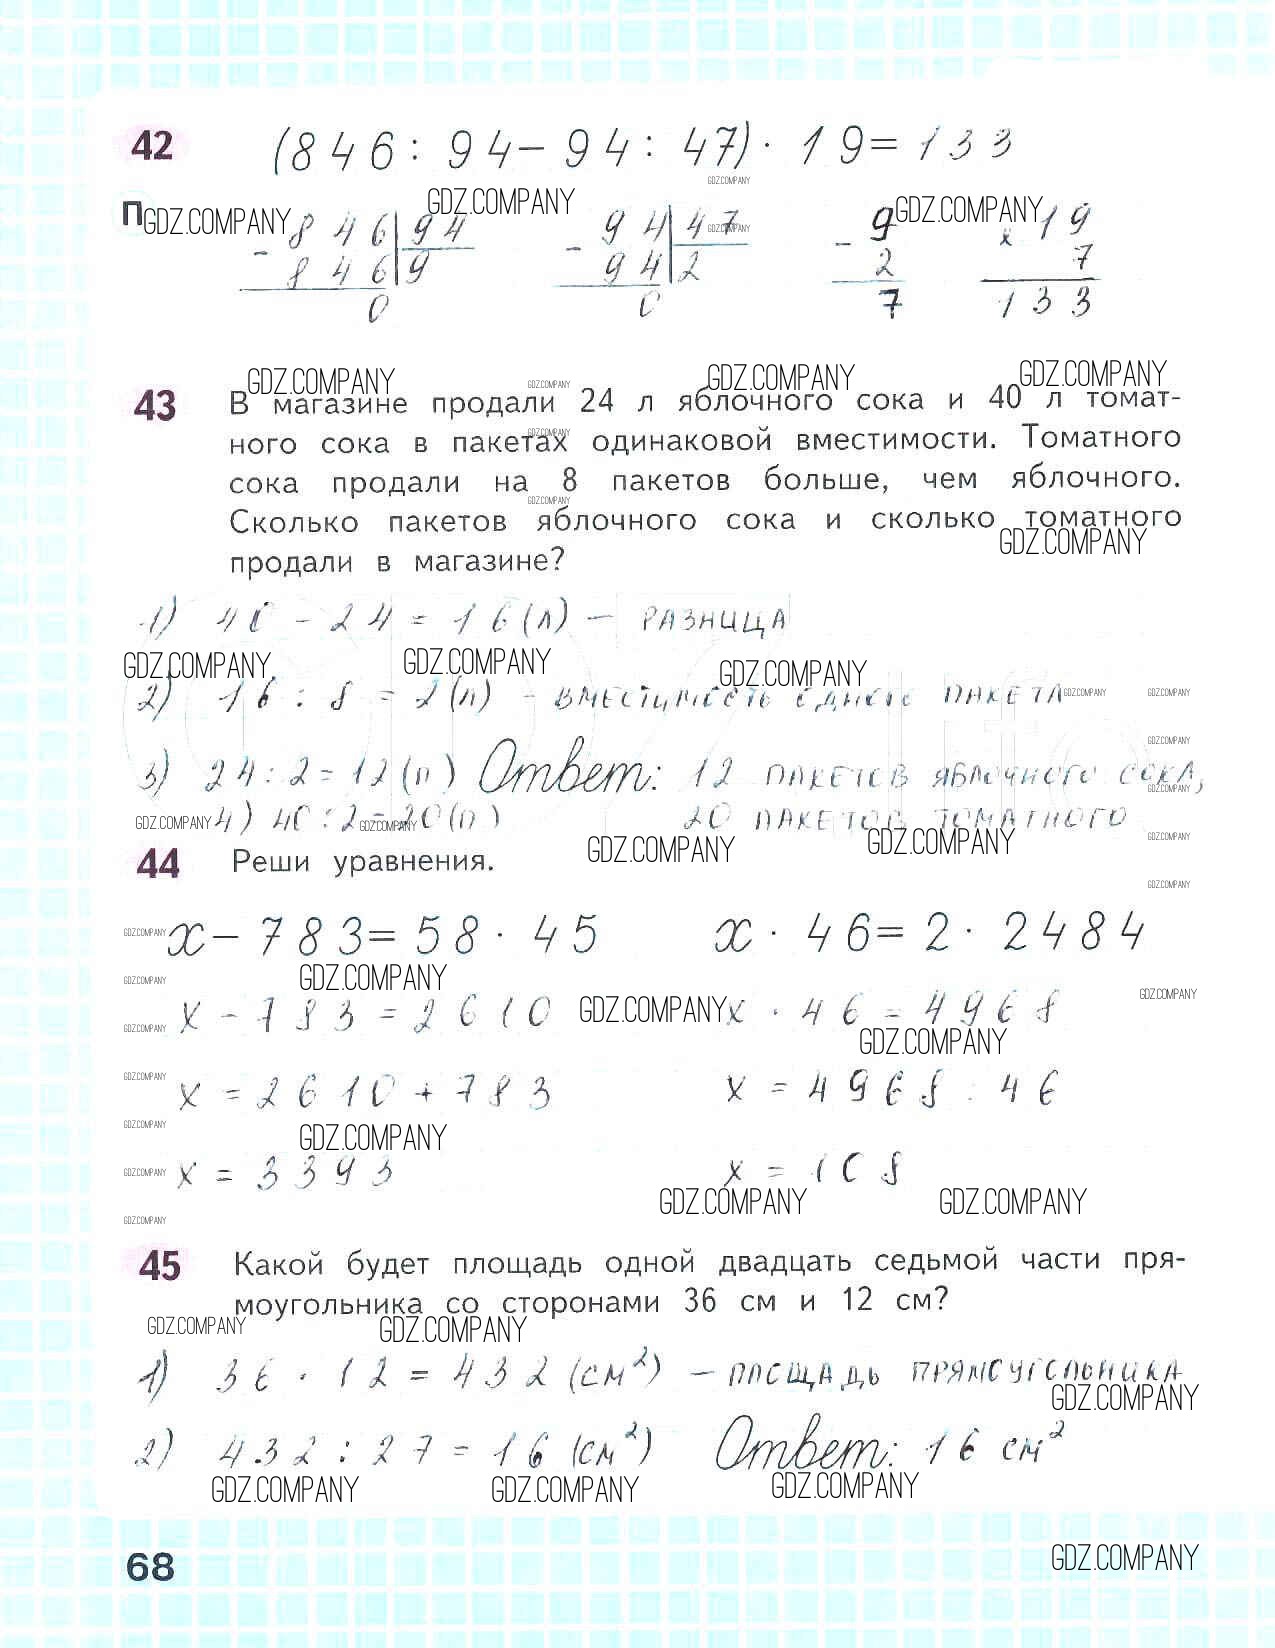 42 (846 : 94 − 94 : 47) · 19 = 133
GDZ.COMPANY
П GDZ.COMPANY GDZ.COMPANY GDZ.COMPANY
− 846 | 94 − 94 | 47 − 9 × 19
846 | 9 94 | 2 2 7
0 0 7 133
GDZ.COMPANY GDZ.COMPANY GDZ.COMPANY GDZ.COMPANY
43 В магазине продали 24 л яблочного сока и 40 л томат-
ного сока в пакетах одинаковой вместимости. Томатного
сока продали на 8 пакетов больше, чем яблочного.
Сколько пакетов яблочного сока и сколько томатного
GDZ.COMPANY
продали в магазине?
1) 40 − 24 = 16 (л) − РАЗНИЦА
GDZ.COMPANY GDZ.COMPANY GDZ.COMPANY
2) 16 : 8 = 2 (л) − ВМЕСТИМОСТЬ ОДНОГО ПАКЕТА
3) 24 : 2 = 12 (п) Ответ: 12 ПАКЕТОВ ЯБЛОЧНОГО СОКА,
4) 40 : 2 = 20 (п) 20 ПАКЕТОВ ТОМАТНОГО
GDZ.COMPANY GDZ.COMPANY GDZ.COMPANY GDZ.COMPANY
44 Реши уравнения.
x − 783 = 58 · 45 x · 46 = 2 · 2484
GDZ.COMPANY
x − 783 = 2610 GDZ.COMPANY x · 46 = 4968
GDZ.COMPANY
x = 2610 + 783 x = 4968 : 46
GDZ.COMPANY
x = 3393 x = 108
GDZ.COMPANY GDZ.COMPANY
45 Какой будет площадь одной двадцать седьмой части пря-
моугольника со сторонами 36 см и 12 см?
GDZ.COMPANY GDZ.COMPANY
1) 36 · 12 = 432 (см²) − ПЛОЩАДЬ ПРЯМОУГОЛЬНИКА
GDZ.COMPANY
2) 432 : 27 = 16 (см²) Ответ: 16 см²
GDZ.COMPANY GDZ.COMPANY GDZ.COMPANY
68 GDZ.COMPANY